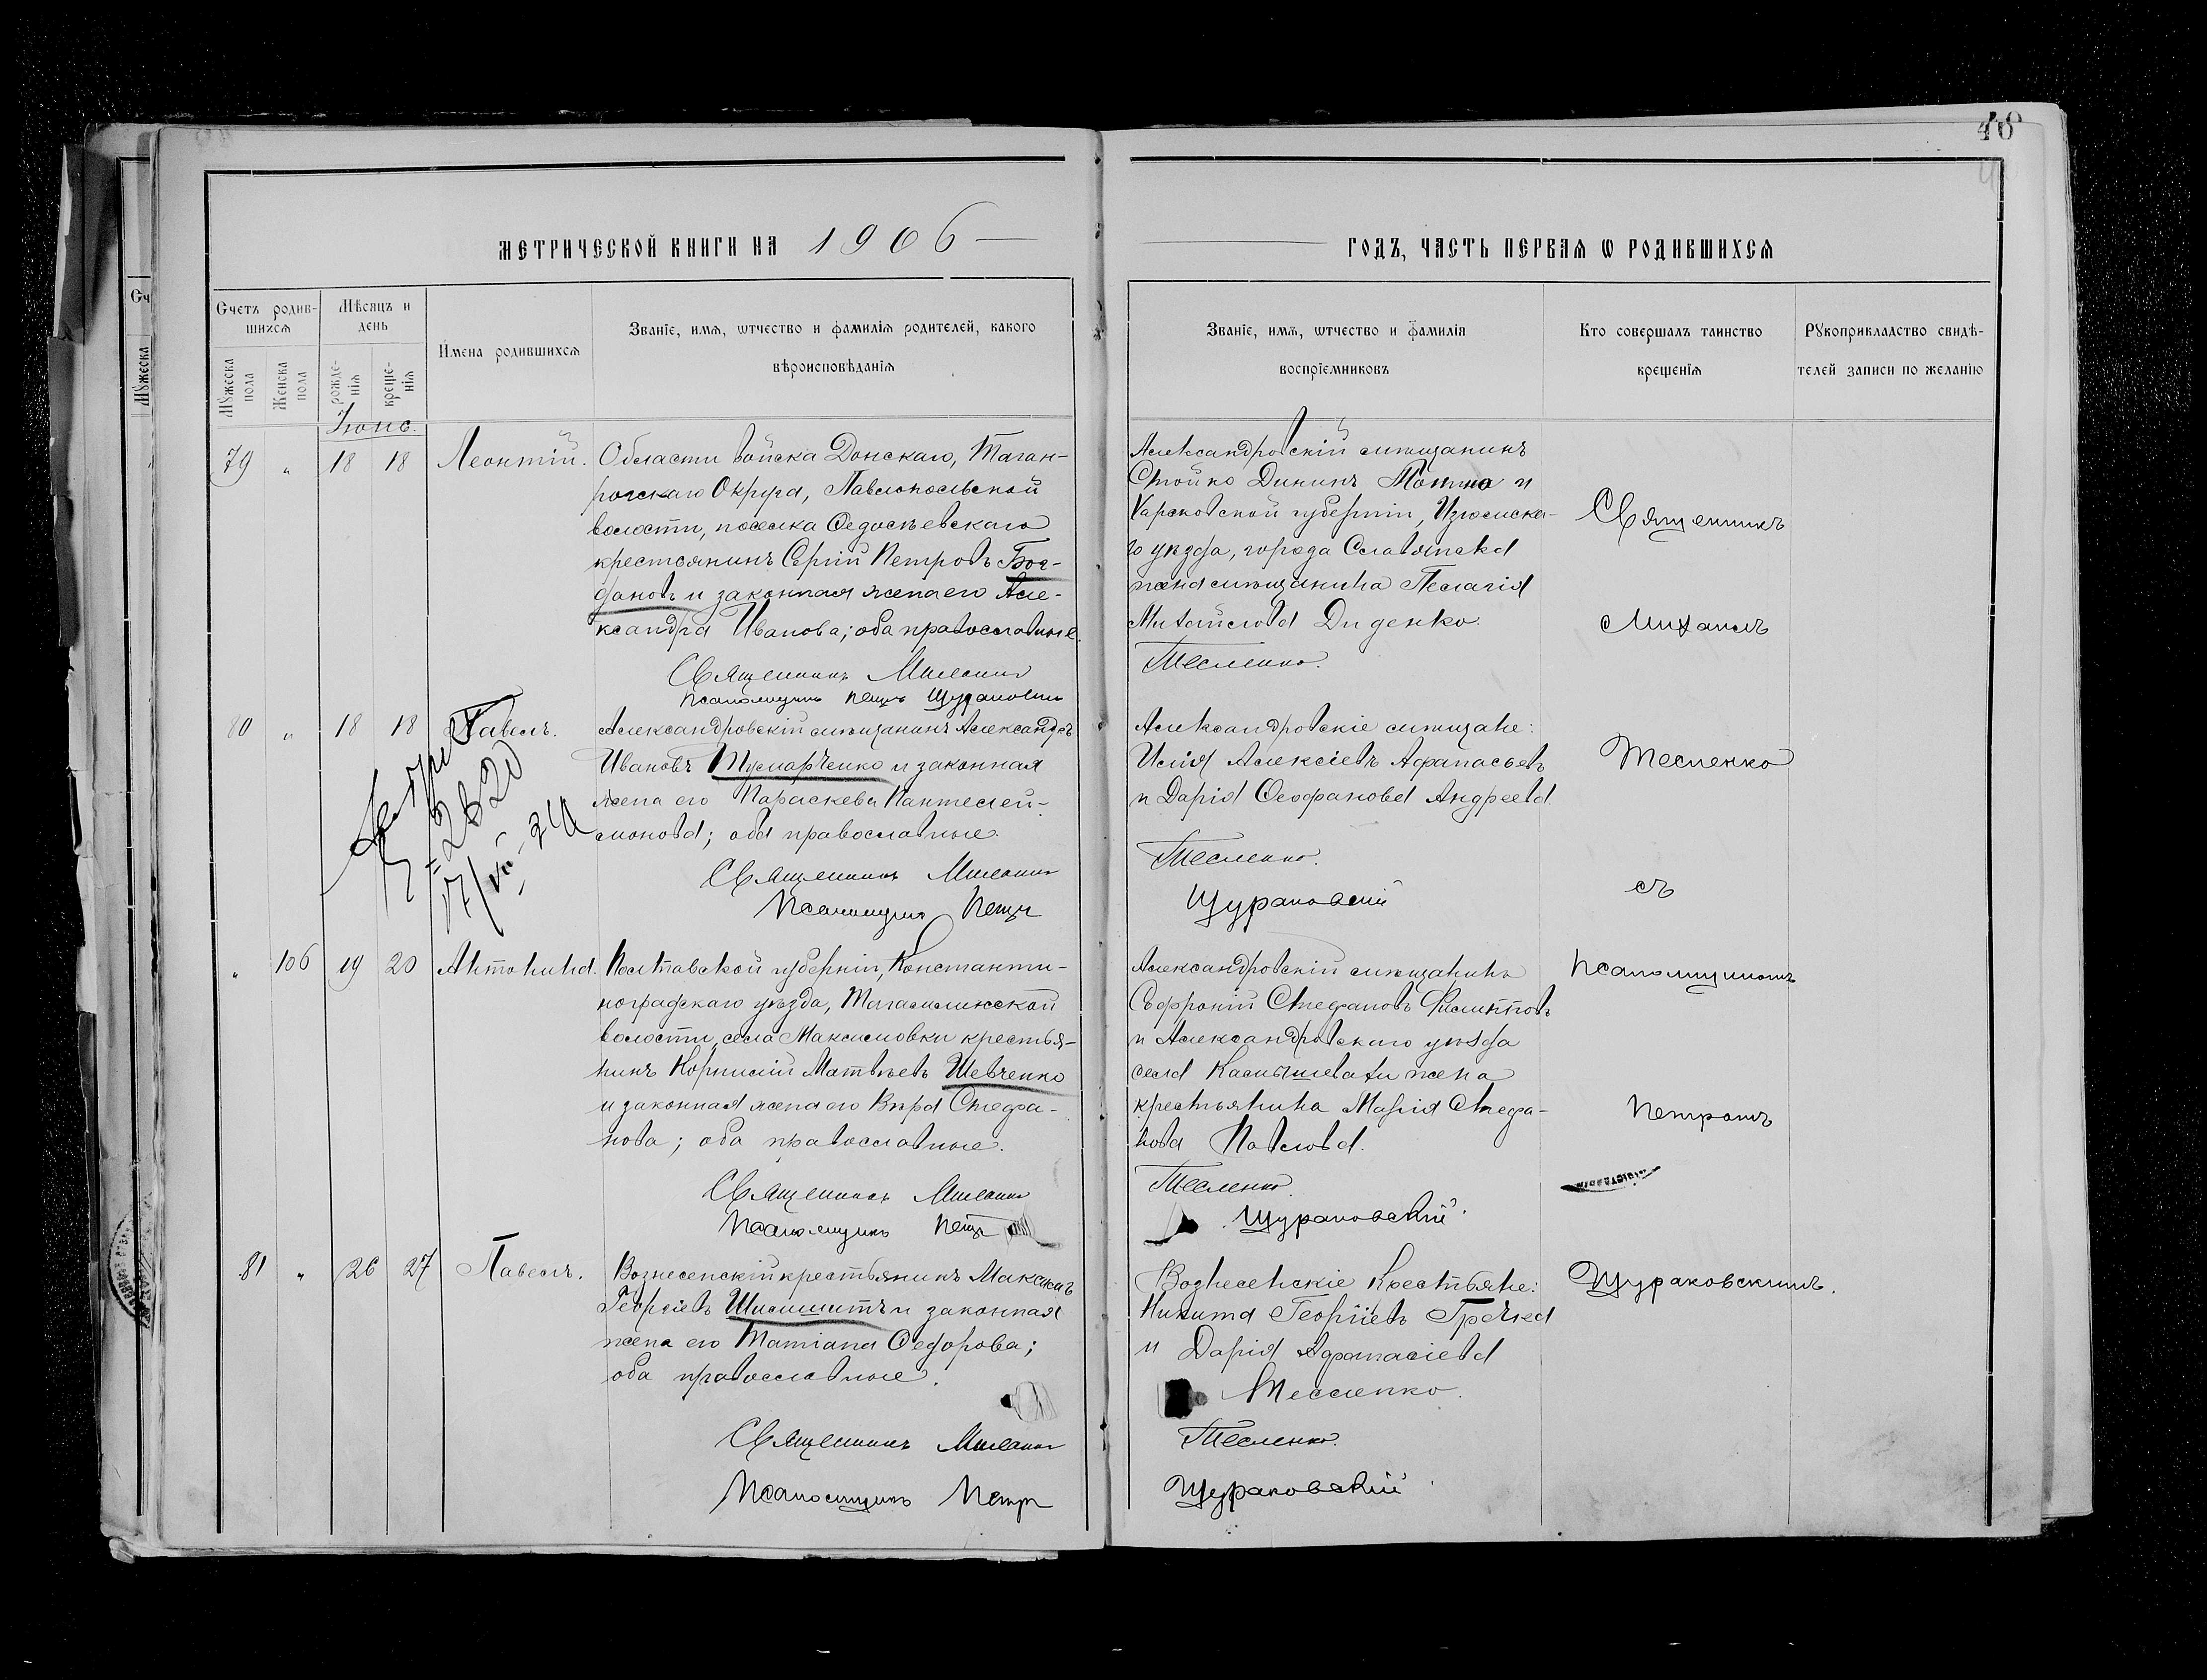 48
МЕТРИЧЕСКОЙ КНИГИ НА 1906
ГОДЪ, ЧАСТЬ ПЕРВАЯ Ѡ РОДИВШИХСЯ
Счетъ родив-
шихся
Мѣсяцъ и
день
Имена родившихся
Званіе, имя, ѡтчество и фамилія родителей, какого
вѣроисповѣданія
Мужеска
пола
Женска
пола
рожде-
нія
креще-
нія
Званіе, имя, ѡтчество и фамилія
воспріемниковъ
Кто совершалъ таинство
крещенія
Рукоприкладство свидѣ-
телей записи по желанію
79 " 18 18 Леонтій.
Области войска Донскаго, Таган-
рогскаго Округа, Павлопольской
волости, поселка Федосѣевскаго
крестьянинъ Сергій Петровъ Бог-
дановъ и законная жена его Але-
ксандра Иванова; оба православные.
Священникъ Михаилъ
Псаломщикъ Петръ Щураковскій
Александровскій мѣщанинъ
Стойко Дининъ и
Харьковской губерніи, Изюмска-
го уѣзда, города Славянска
жена мѣщанина Пелагія
Михайлова Диденко.
Тесленко.
80 " 18 18 Павелъ.
Александровскій мѣщанинъ Александръ
Ивановъ и законная
жена его Параскева Пантелей-
монова; оба православные.
Священникъ Михаилъ
Псаломщикъ Петръ
Александровскіе мѣщане:
Илія Алексіевъ Афанасьевъ
и Дарія Феофанова Андреева.
Тесленко.
Щураковскій
" 106 19 20 Антонина.
Полтавской губерніи, Константи-
ноградскаго уѣзда,
волости, села Максимовки крестья-
нинъ Корнилій Матвѣевъ Шевченко
и законная жена его Вѣра Стефа-
нова; оба православные.
Священникъ Михаилъ
Псаломщикъ Петръ
Александровскій мѣщанинъ
Софроній Стефановъ Филипповъ
и Александровскаго уѣзда
села Камышевахи жена
крестьянина Марія Стефа-
нова Павлова.
Тесленко.
Щураковскій
81 " 26 27 Павелъ.
Вознесенскій крестьянинъ Максимъ
Георгіевъ и законная
жена его Татіана Федорова;
оба православные.
Священникъ Михаилъ
Псаломщикъ Петръ
Вознесенскіе Крестьяне:
Никита Георгіевъ
и Дарія Афанасіева
Тесленко.
Тесленко.
Щураковскій
Священникъ
Михаилъ
Тесленко
съ
псаломщикомъ
Петромъ
Щураковскимъ.